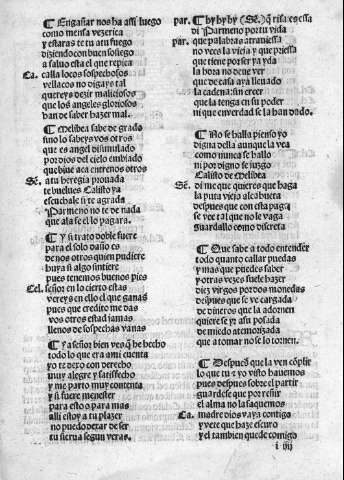 ¶ Engañar nos ha assi luego
como mensa vezerica
y estaras te tu a tu fuego
diziendo con buen sosiego
a saluo esta el que repica
Ca. calla locos sospechosos
vellacos no digays tal
quereys dezir maliciosos
que los angeles gloriosos
han de saber hazer mal.
¶ Melibea sabe de grado
sino lo sabeys vos otros
que es angel dissimulado
por dios del cielo embiado
que biue aca entre nos otros
Sē. a tu heregia prouada
te buelues Calisto ya
escuchale si te agrada
Parmeno no te de nada
que a la se el lo pagara.
¶ Y si trato doble fuere
para el solo daño es
de nos otros quien pudiere
huya si algo sintiere
pues tenemos buenos pies
Cel. señor en lo cierto estas
vereys en ello el que ganas
pues que credito me das
vos otros estad jamas
llenos de sospechas vanas
¶ Y a señor bien ves q̄ he hecho
todo lo que era a mi cuenta
yo te dexo con derecho
muy alegre y satisfecho
y me parto muy contenta
y si fuere menester
para esto o para mas
alli estoy a tu plazer
no puedo dexar de ser
tu sierua segun veras.
par. ¶ hy hy hy (Sē.) q̄ risa es essa
di Parmeno por tu vida
par. que palabras atrauiessa
no vees la vieja y que priessa
que tiene por ser ya yda
la hora no deue ver
que de casa aya lleuado
la cadena: sin creer
que la tenga en su poder
ni que en verdad se la han dado.
¶ No se halla pienso yo
digna della aunque la vea
como nunca se hallo
ni por digno se juzgo
Calisto de Melibea
Sē. di me que quieres que haga
la puta vieja alcahueta
despues que con esta paga
se vee tal que no le vaga
guardallo como discreta
¶ Que sabe a todo entender
todo quanto callar puedas
y mas que puedes saber
y otras vezes suele hazer
diez virgos por dos monedas
despues que se ve cargada
de dineros que la adornen
quiere se yr a su posada
de miedo atemorizada
que a tomar no se lo tornen.
¶ Despues que la ven cōplir
lo que tu z yo visto hauemos
pues despues sobre el partir
guardese que por reñir
el alma no la saquemos
Ca. madre dios vaya contigo
y vete que haze escuro
y el tambien quede comigo
i iiij